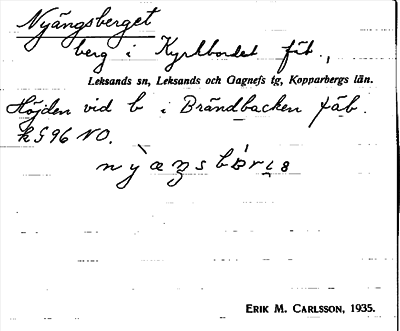 Nyängsberget
berg i Kyrkbordet fäb.,
Leksands sn, Leksands och Gagnefs tg, Kopparbergs län.
Höjden vid b i Brändbacken fäb.
k 596 NO.
ERIK M. CARLSSON, 1935.